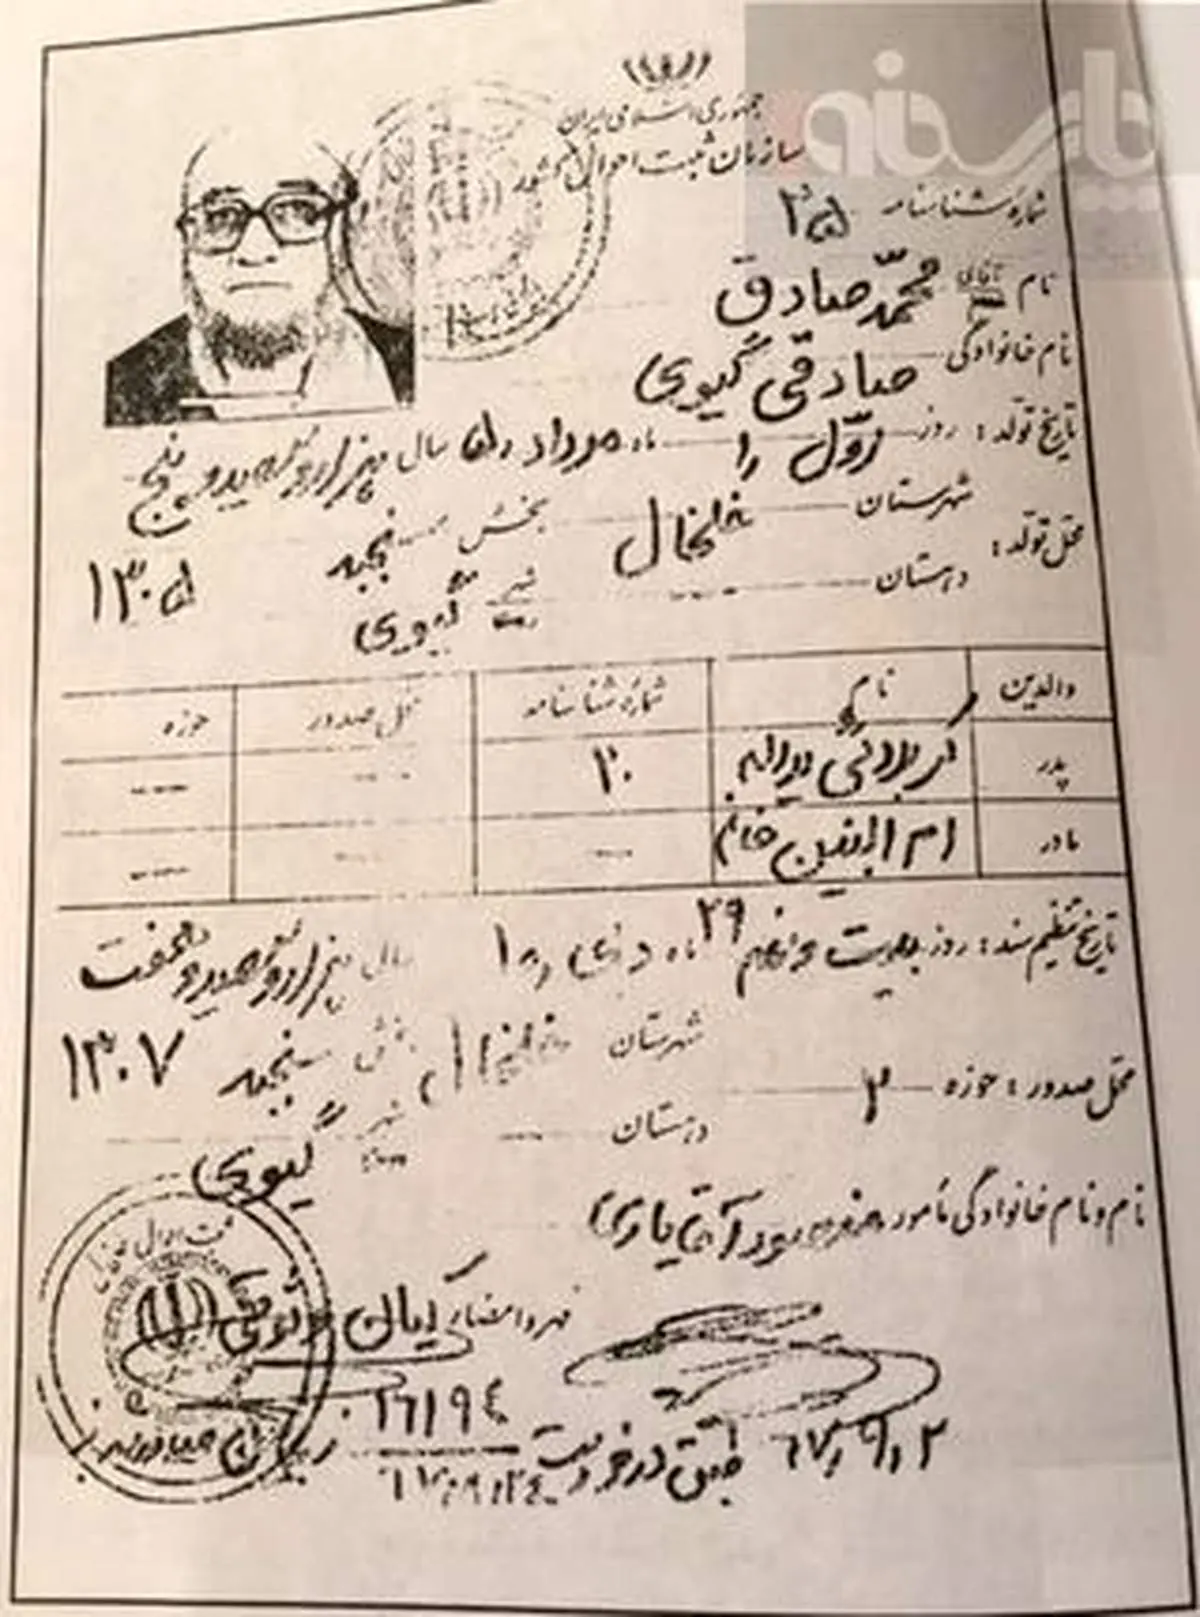 پارسینه
جمهوری اسلامی ایران
سازمان ثبت احوال کشور
شماره شناسنامه ۲۵
نام آقای محمد صادق
نام خانوادگی صادقی گیوی
تاریخ تولد: روز اول ماه مرداد سال یکهزار و سیصد و پنج
۱۳۰۵
محل تولد: شهرستان خلخال بخش سنجبد
دهستان شهر گیوی
والدین نام شماره شناسنامه محل صدور حوزه
پدر کربلائی ۲۰
مادر ام البنین خانم
تاریخ تنظیم سند: روز بیست و نهم ۲۹ ماه دی ۱۰ سال یکهزار و سیصد و هفت
۱۳۰۷
محل صدور: حوزه ۲ شهرستان خلخال بخش سنجبد
دهستان شهر گیوی
نام و نام خانوادگی مأمور
مهر و امضاء
۶۷/۹/۲ طبق درخواست ۲۶۱۹۴